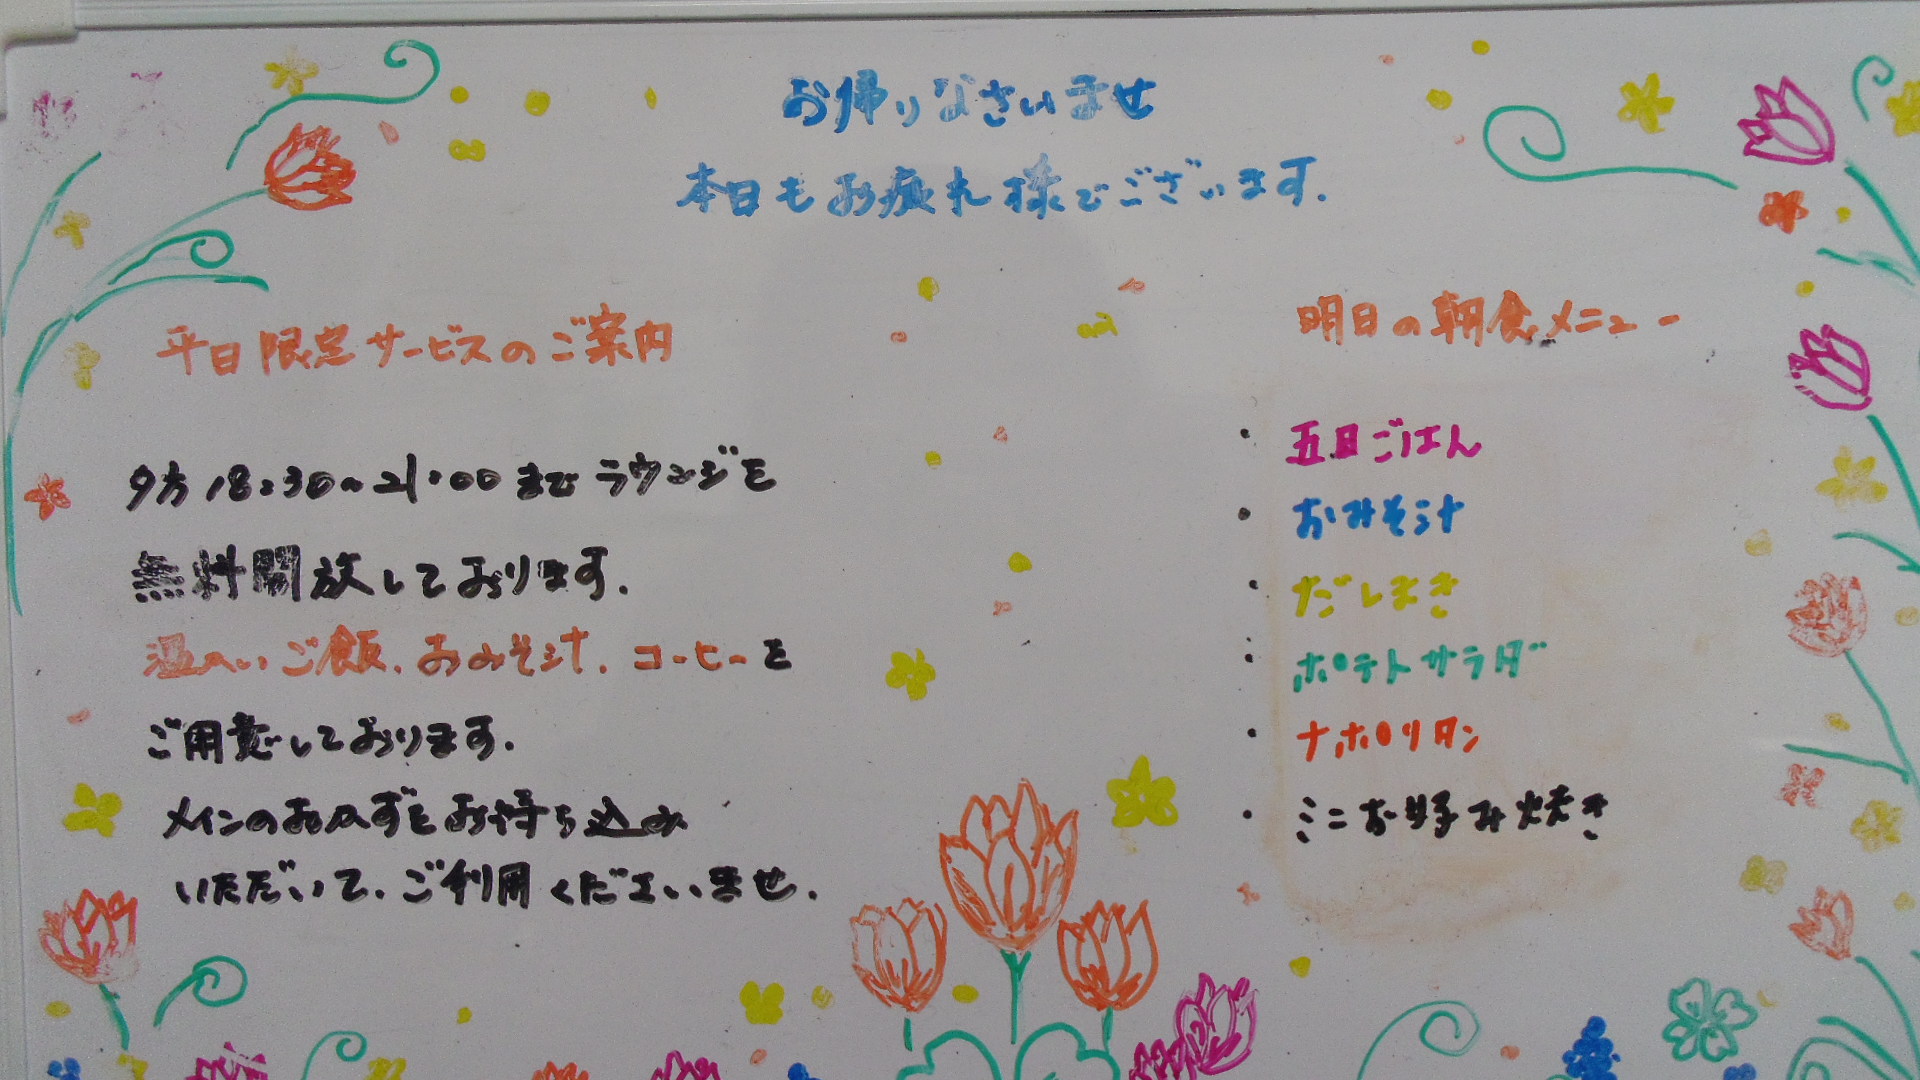 お帰りなさいませ
本日もお疲れ様でございます.
平日限定サービスのご案内
夕方18:30〜21:00までラウンジを
無料開放しております.
温かいご飯.おみそ汁.コーヒーを
ご用意しております.
メインのおかずをお持ち込み
いただいて.ご利用くださいませ.
明日の朝食メニュー
・五目ごはん
・おみそ汁
・だしまき
・ポテトサラダ
・ナポリタン
・ミニお好み焼き